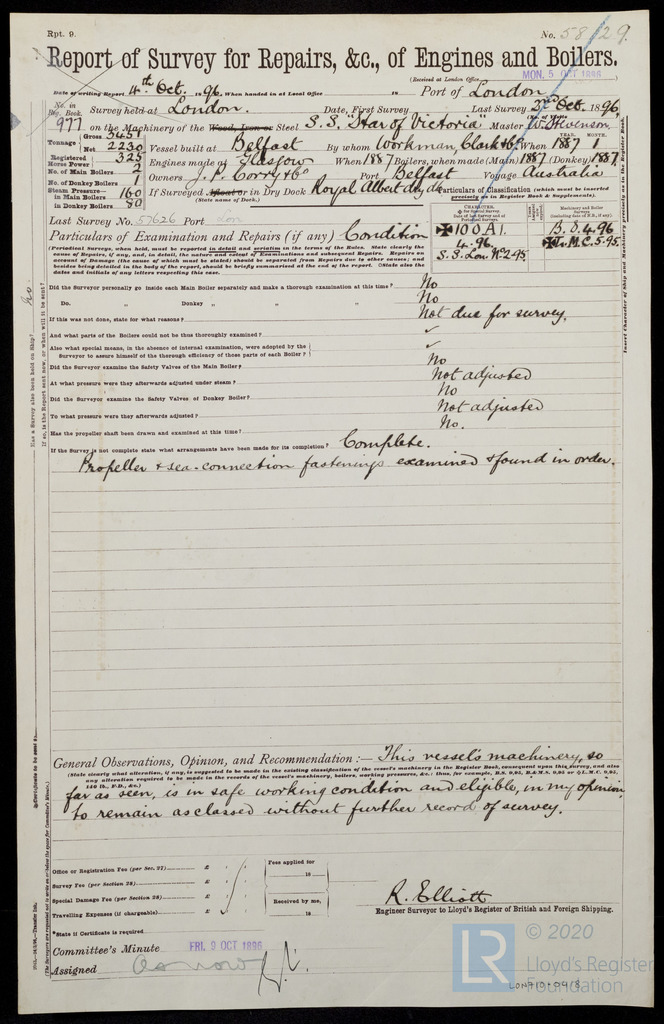 Rpt. 9.
No. 58129.
Report of Survey for Repairs, &c., of Engines and Boilers.
(Received at London Office MON. 5 OCT 1896
Date of writing Report 4th Oct. 1896. When handed in at Local Office 18 Port of London
No. in Reg. Book. Survey held at London. Date, First Survey Last Survey 2nd Oct. 1896
977 on the Machinery of the Wood, Iron or Steel S.S. "Star of Victoria" Master W. Stevenson
Tonnage Gross 3451
Net 2230 Vessel built at Belfast By whom Workman, Clark & Co. When 1887 YEAR. MONTH. 1
Registered Horse Power 325 Engines made at Glasgow When 1887 Boilers, when made (Main) 1887 (Donkey) 1887
No. of Main Boilers 2 Owners J. P. Corry & Co Port Belfast Voyage Australia
No. of Donkey Boilers 1
Steam Pressure— in Main Boilers 160 If Surveyed Afloat or in Dry Dock Royal Albert dry dk
(State name of Dock.)
in Donkey Boilers 80
Particulars of Classification (which must be inserted precisely as in Register Book & Supplements).
Last Survey No. 57626 Port Lon
✠100A1. B.S. 4.96
4.96. ✠L.M.C. 5.95
S.S. Lon. No 2-95
Particulars of Examination and Repairs (if any) Condition
(Periodical Surveys, when held, must be reported in detail and seriatim in the terms of the Rules. State clearly the
cause of Repairs, if any, and, in detail, the nature and extent of Examinations and subsequent Repairs. Repairs on
account of Damage (the cause of which must be stated) should be separated from Repairs due to other causes; and
besides being detailed in the body of the report, should be briefly summarised at the end of the report. State also the
dates and initials of any letters respecting this case.
Did the Surveyor personally go inside each Main Boiler separately and make a thorough examination at this time? No
Do. " Donkey " " " No
If this was not done, state for what reasons? Not due for survey.
And what parts of the Boilers could not be thus thoroughly examined? ✓
Also what special means, in the absence of internal examination, were adopted by the
Surveyor to assure himself of the thorough efficiency of those parts of each Boiler? ✓
Did the Surveyor examine the Safety Valves of the Main Boiler? No
At what pressure were they afterwards adjusted under steam? Not adjusted
Did the Surveyor examine the Safety Valves of Donkey Boiler? No
To what pressure were they afterwards adjusted? Not adjusted
Has the propeller shaft been drawn and examined at this time? No.
If the Survey is not complete state what arrangements have been made for its completion? Complete.
Propeller & sea-connection fastenings examined & found in order.
General Observations, Opinion, and Recommendation:— This vessel's machinery, so
(State clearly what alteration, if any, is suggested to be made in the existing classification of the vessel's machinery in the Register Book, consequent upon this survey, and also
any alteration required to be made in the records of the vessel's machinery, boilers, working pressures, &c.
far as seen, is in safe working condition and eligible, in my opinion,
to remain as classed without further record of survey.
Office or Registration Fee (per Sec. 27) £
Survey Fee (per Section 28) £
Special Damage Fee (per Section 28) £
Travelling Expenses (if chargeable) £
Fees applied for
18
Received by me,
18
R. Elliott
Engineer Surveyor to Lloyd's Register of British and Foreign Shipping.
*State if Certificate is required
Committee's Minute FRI. 9 OCT 1896
Assigned As now
LR © 2020
Lloyd's Register
Foundation
LON710-0418